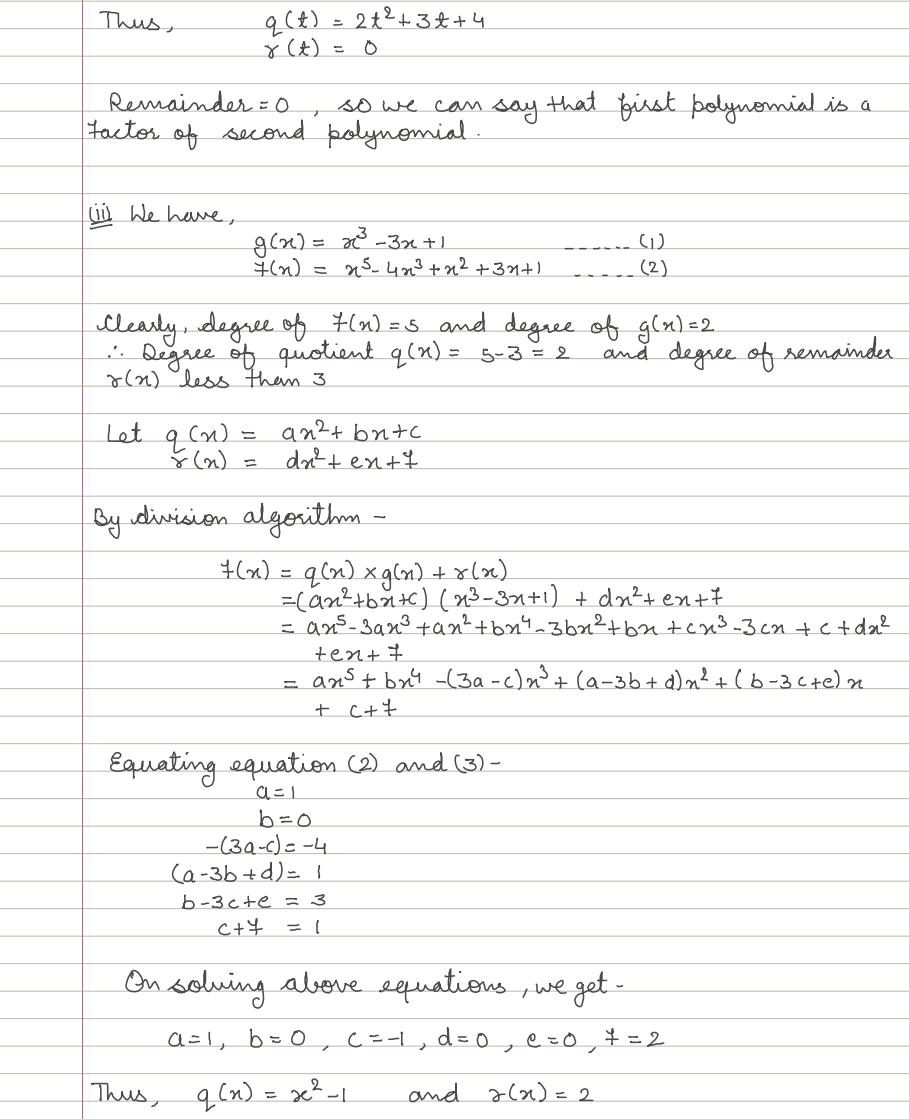 Thus, q(t) = 2t²+3t+4
r(t) = 0
Remainder=0 , so we can say that first polynomial is a
factor of second polynomial.
(ii) We have,
g(x) = x³-3x+1 ------ (1)
f(x) = x⁵-4x³+x²+3x+1 ----- (2)
Clearly, degree of f(x)=5 and degree of g(x)=2
∴ Degree of quotient q(x) = 5-3 = 2 and degree of remainder
r(x) less than 3
Let q(x) = ax²+bx+c
r(x) = dx²+ex+f
By division algorithm -
f(x) = q(x)×g(x)+r(x)
=(ax²+bx+c) (x³-3x+1) + dx²+ex+f
= ax⁵-3ax³+ax²+bx⁴-3bx²+bx+cx³-3cx+c+dx²
+ex+f
= ax⁵+bx⁴-(3a-c)x³+(a-3b+d)x²+(b-3c+e)x
+ c+f
Equating equation (2) and (3)-
a=1
b=0
-(3a-c)=-4
(a-3b+d)= 1
b-3c+e = 3
c+f = 1
On solving above equations, we get -
a=1, b=0 , c=-1 , d=0 , e=0 , f=2
Thus, q(x) = x²-1 and r(x)=2